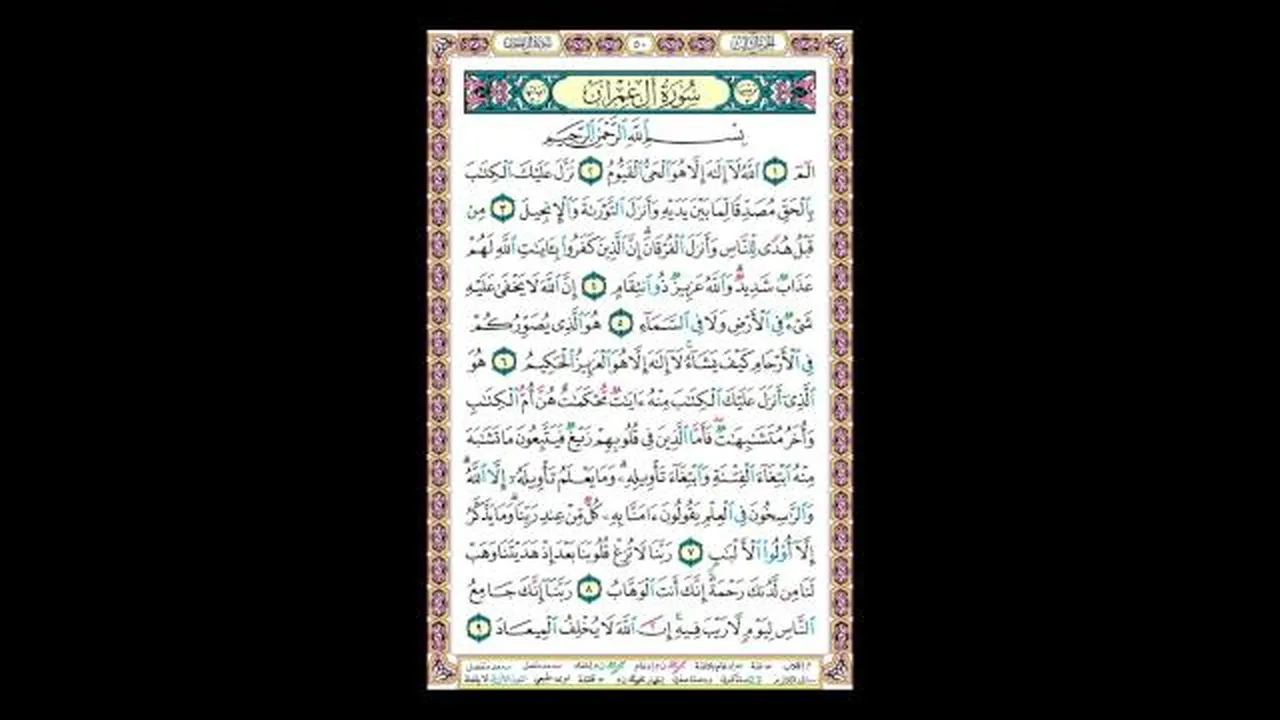 ٥٠
سُورَةُ آلِ عِمْرَانَ
بِسْمِ ٱللَّهِ ٱلرَّحْمَٰنِ ٱلرَّحِيمِ
الٓمٓ ١ ٱللَّهُ لَآ إِلَٰهَ إِلَّا هُوَ ٱلْحَىُّ ٱلْقَيُّومُ ٢ نَزَّلَ عَلَيْكَ ٱلْكِتَٰبَ
بِٱلْحَقِّ مُصَدِّقًا لِّمَا بَيْنَ يَدَيْهِ وَأَنزَلَ ٱلتَّوْرَىٰةَ وَٱلْإِنجِيلَ ٣ مِن
قَبْلُ هُدًى لِّلنَّاسِ وَأَنزَلَ ٱلْفُرْقَانَ ۗ إِنَّ ٱلَّذِينَ كَفَرُوا۟ بِـَٔايَٰتِ ٱللَّهِ لَهُمْ
عَذَابٌ شَدِيدٌ ۗ وَٱللَّهُ عَزِيزٌ ذُو ٱنتِقَامٍ ٤ إِنَّ ٱللَّهَ لَا يَخْفَىٰ عَلَيْهِ
شَىْءٌ فِى ٱلْأَرْضِ وَلَا فِى ٱلسَّمَآءِ ٥ هُوَ ٱلَّذِى يُصَوِّرُكُمْ
فِى ٱلْأَرْحَامِ كَيْفَ يَشَآءُ ۚ لَآ إِلَٰهَ إِلَّا هُوَ ٱلْعَزِيزُ ٱلْحَكِيمُ ٦ هُوَ
ٱلَّذِىٓ أَنزَلَ عَلَيْكَ ٱلْكِتَٰبَ مِنْهُ ءَايَٰتٌ مُّحْكَمَٰتٌ هُنَّ أُمُّ ٱلْكِتَٰبِ
وَأُخَرُ مُتَشَٰبِهَٰتٌ ۖ فَأَمَّا ٱلَّذِينَ فِى قُلُوبِهِمْ زَيْغٌ فَيَتَّبِعُونَ مَا تَشَٰبَهَ
مِنْهُ ٱبْتِغَآءَ ٱلْفِتْنَةِ وَٱبْتِغَآءَ تَأْوِيلِهِۦ ۗ وَمَا يَعْلَمُ تَأْوِيلَهُۥٓ إِلَّا ٱللَّهُ ۗ
وَٱلرَّٰسِخُونَ فِى ٱلْعِلْمِ يَقُولُونَ ءَامَنَّا بِهِۦ كُلٌّ مِّنْ عِندِ رَبِّنَا ۗ وَمَا يَذَّكَّرُ
إِلَّآ أُو۟لُوا۟ ٱلْأَلْبَٰبِ ٧ رَبَّنَا لَا تُزِغْ قُلُوبَنَا بَعْدَ إِذْ هَدَيْتَنَا وَهَبْ
لَنَا مِن لَّدُنكَ رَحْمَةً ۚ إِنَّكَ أَنتَ ٱلْوَهَّابُ ٨ رَبَّنَآ إِنَّكَ جَامِعُ
ٱلنَّاسِ لِيَوْمٍ لَّا رَيْبَ فِيهِ ۚ إِنَّ ٱللَّهَ لَا يُخْلِفُ ٱلْمِيعَادَ ٩